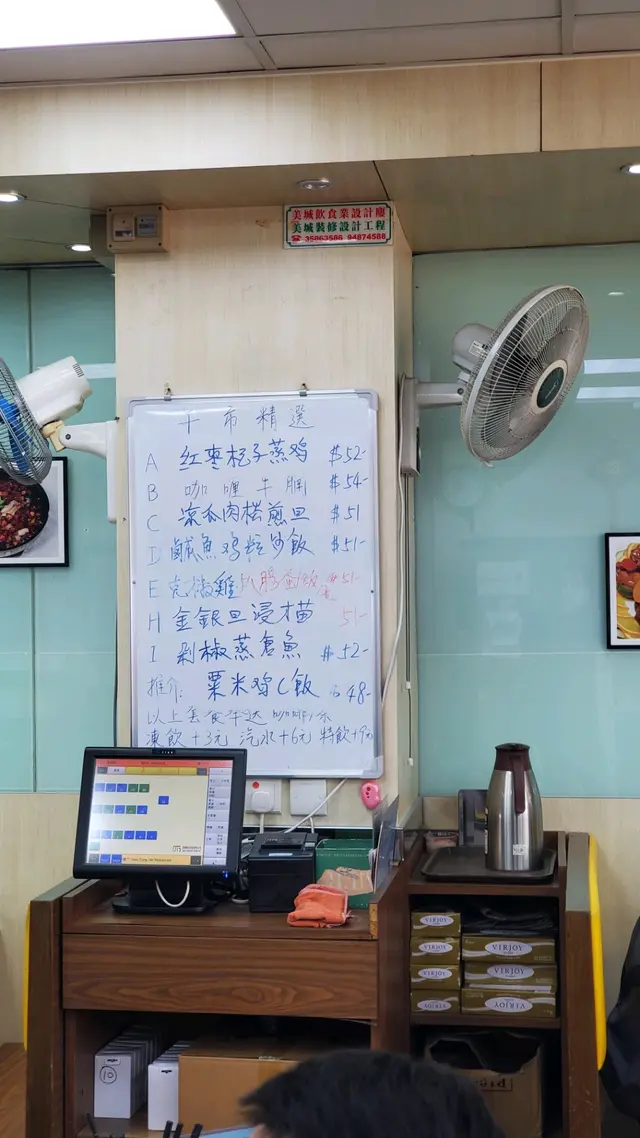 美城飲食業設計廠
美城裝修設計工程
☎ 35963586 94874588
午市精選
A 红枣杞子蒸鸡 $52-
B 咖喱牛腩 $54-
C 凉瓜肉松煎旦 $51
D 鹹魚鸡粒炒飯 $51-
E 克椒雞扒腸蛋飯 $51-
H 金銀旦浸才苗 51-
I 剁椒蒸倉魚 $52-
推介: 粟米鸡し飯 48-
以上套飯午送
凍飲+3元 汽水+6元 特飲+9元
VIRJOY
VIRJOY
VIRJOY
VIRJOY
VIRJOY
VIRJOY
VIRJOY
10